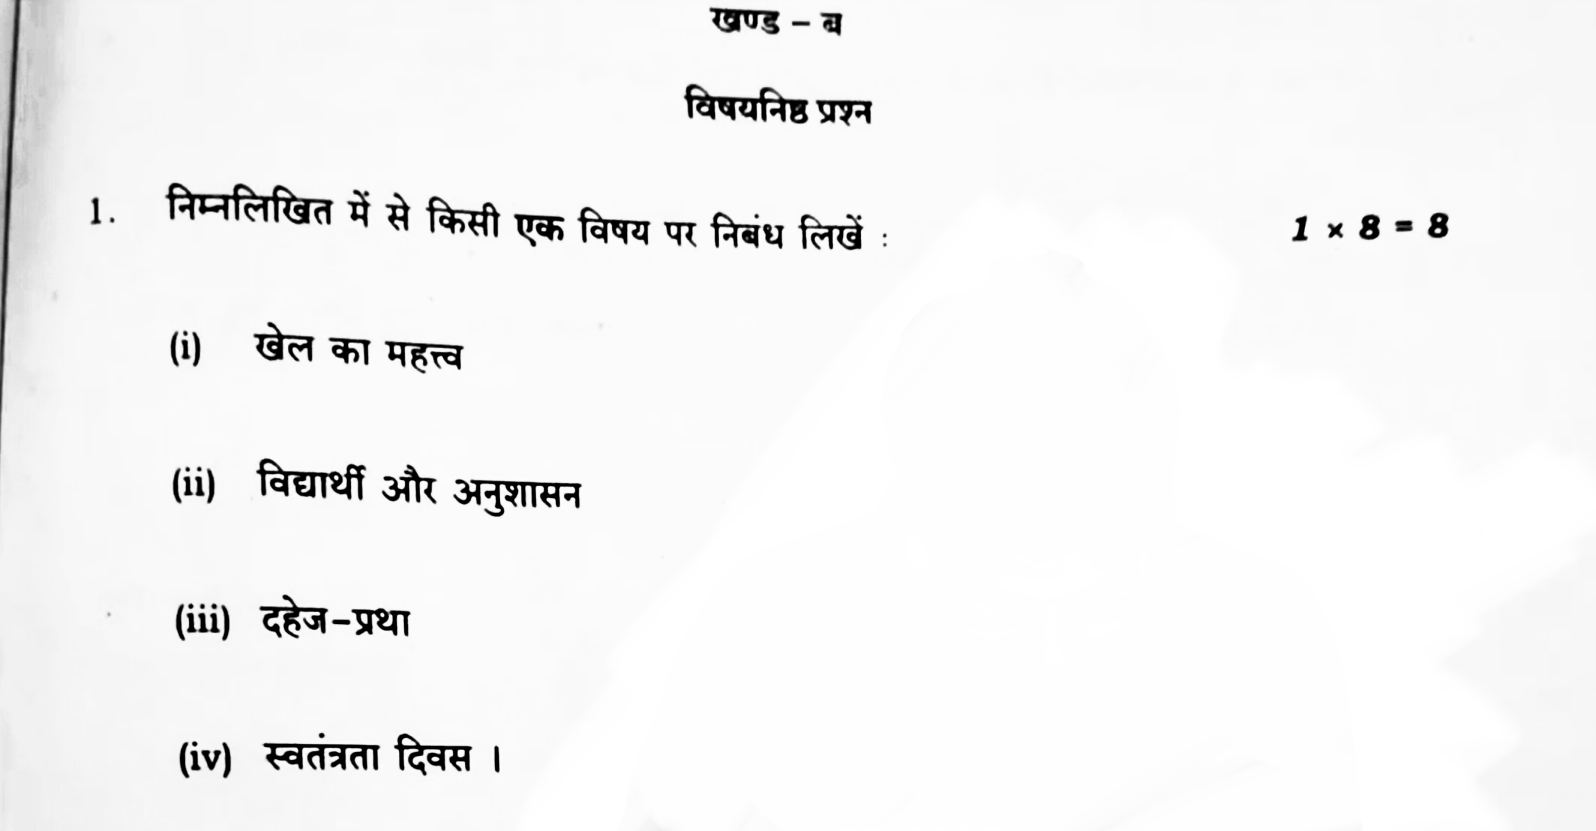 खण्ड – ब
विषयनिष्ठ प्रश्न
1. निम्नलिखित में से किसी एक विषय पर निबंध लिखें : 1 × 8 = 8
(i) खेल का महत्त्व
(ii) विद्यार्थी और अनुशासन
(iii) दहेज-प्रथा
(iv) स्वतंत्रता दिवस ।